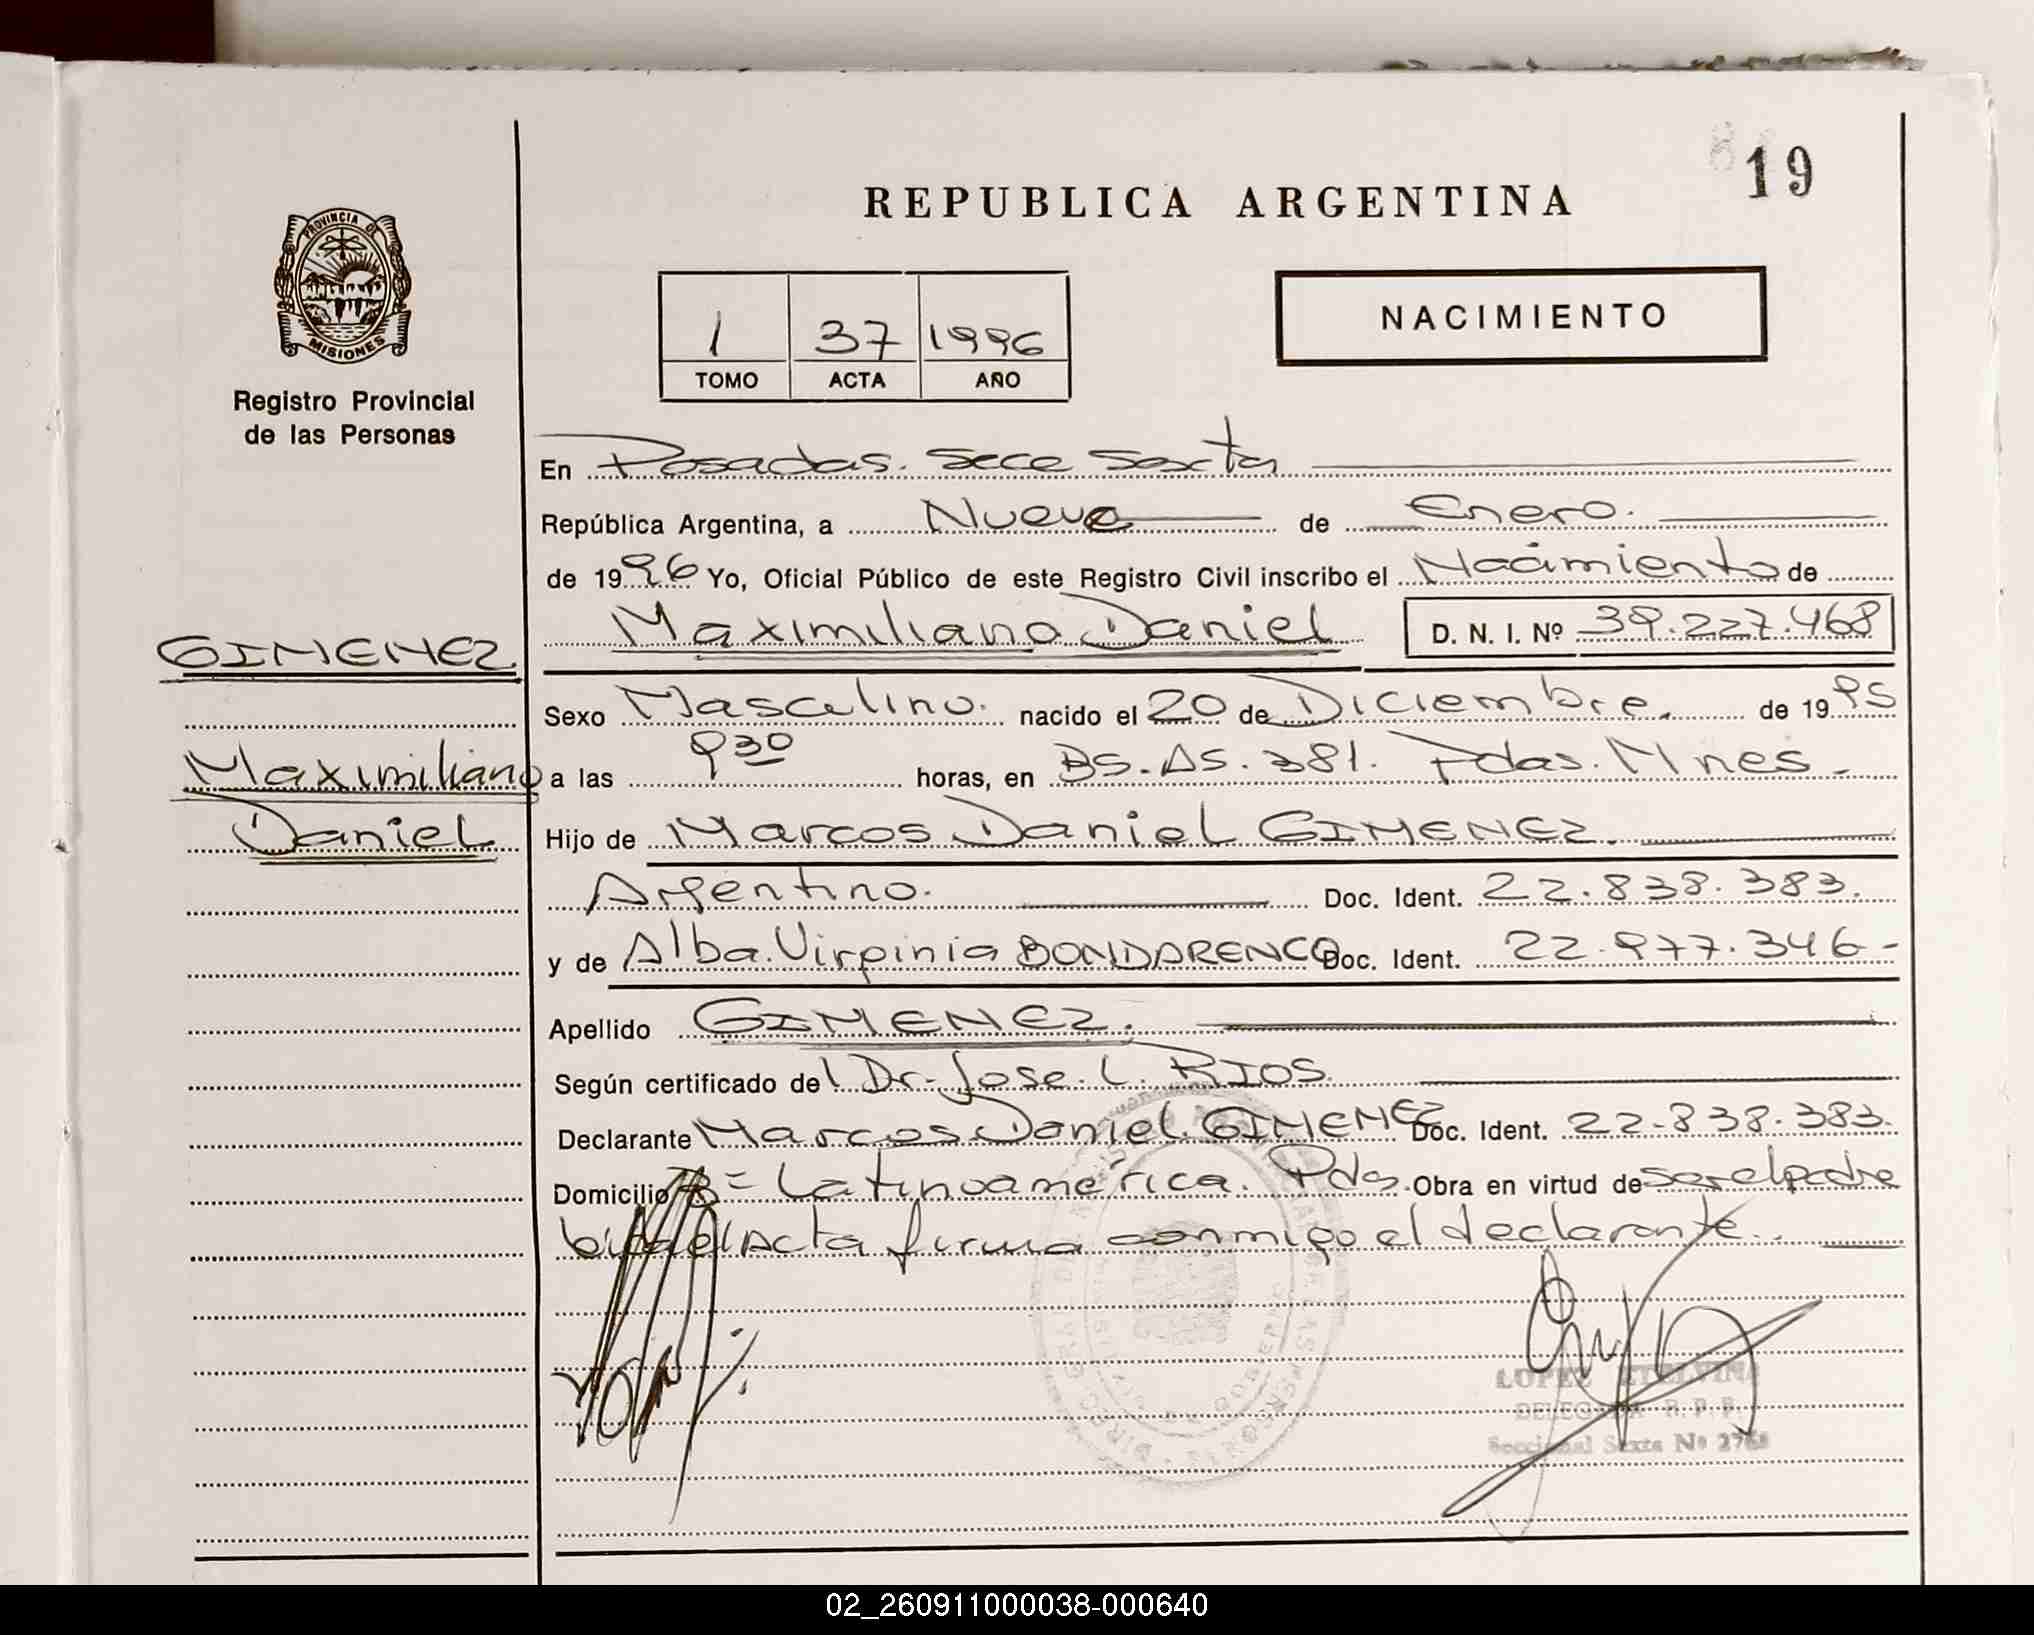 19
REPUBLICA ARGENTINA
PROVINCIA DE
MISIONES
Registro Provincial
de las Personas
NACIMIENTO
1 37 1996
TOMO ACTA AÑO
En Posadas. Secc Sexta
República Argentina, a Nueve de Enero.
de 1996 Yo, Oficial Público de este Registro Civil inscribo el Nacimiento de
Maximiliano Daniel D. N. I. Nº 39.227.468
GIMENEZ
Sexo Masculino. nacido el 20 de Diciembre. de 1995
Maximiliano
a las 9 30 horas, en BS.AS. 381. Pdas. Mnes.
Daniel
Hijo de Marcos Daniel GIMENEZ.
Argentino. Doc. Ident. 22.838.383.
y de Alba Virginia BONDARENCO Doc. Ident. 22.977.346-
Apellido GIMENEZ.
Según certificado del Dr. Jose. L. RIOS.
Declarante Marcos Daniel GIMENEZ Doc. Ident. 22.838.383.
Domicilio Latinoamérica. Pdas. Obra en virtud de ser el padre
el Acta firma conmigo el declarante.
LOPEZ ETELVINA
DELEGADA R. P. P.
Seccional Sexta Nº 2768
02_260911000038-000640